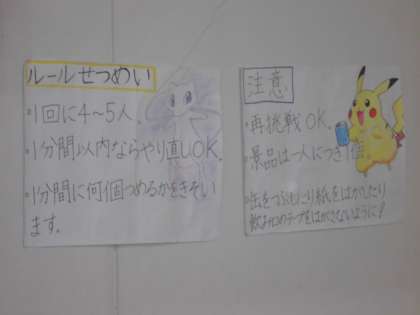 ルールせつめい
・1回に4~5人。
・1分間以内ならやり直しOK。
・1分間に何個つめるかをきそい
ます。
注意
・再挑戦OK。
・景品は一人につき1個。
・缶をつぶしたり紙をはがしたり
飲み口のテープをはがさないように!